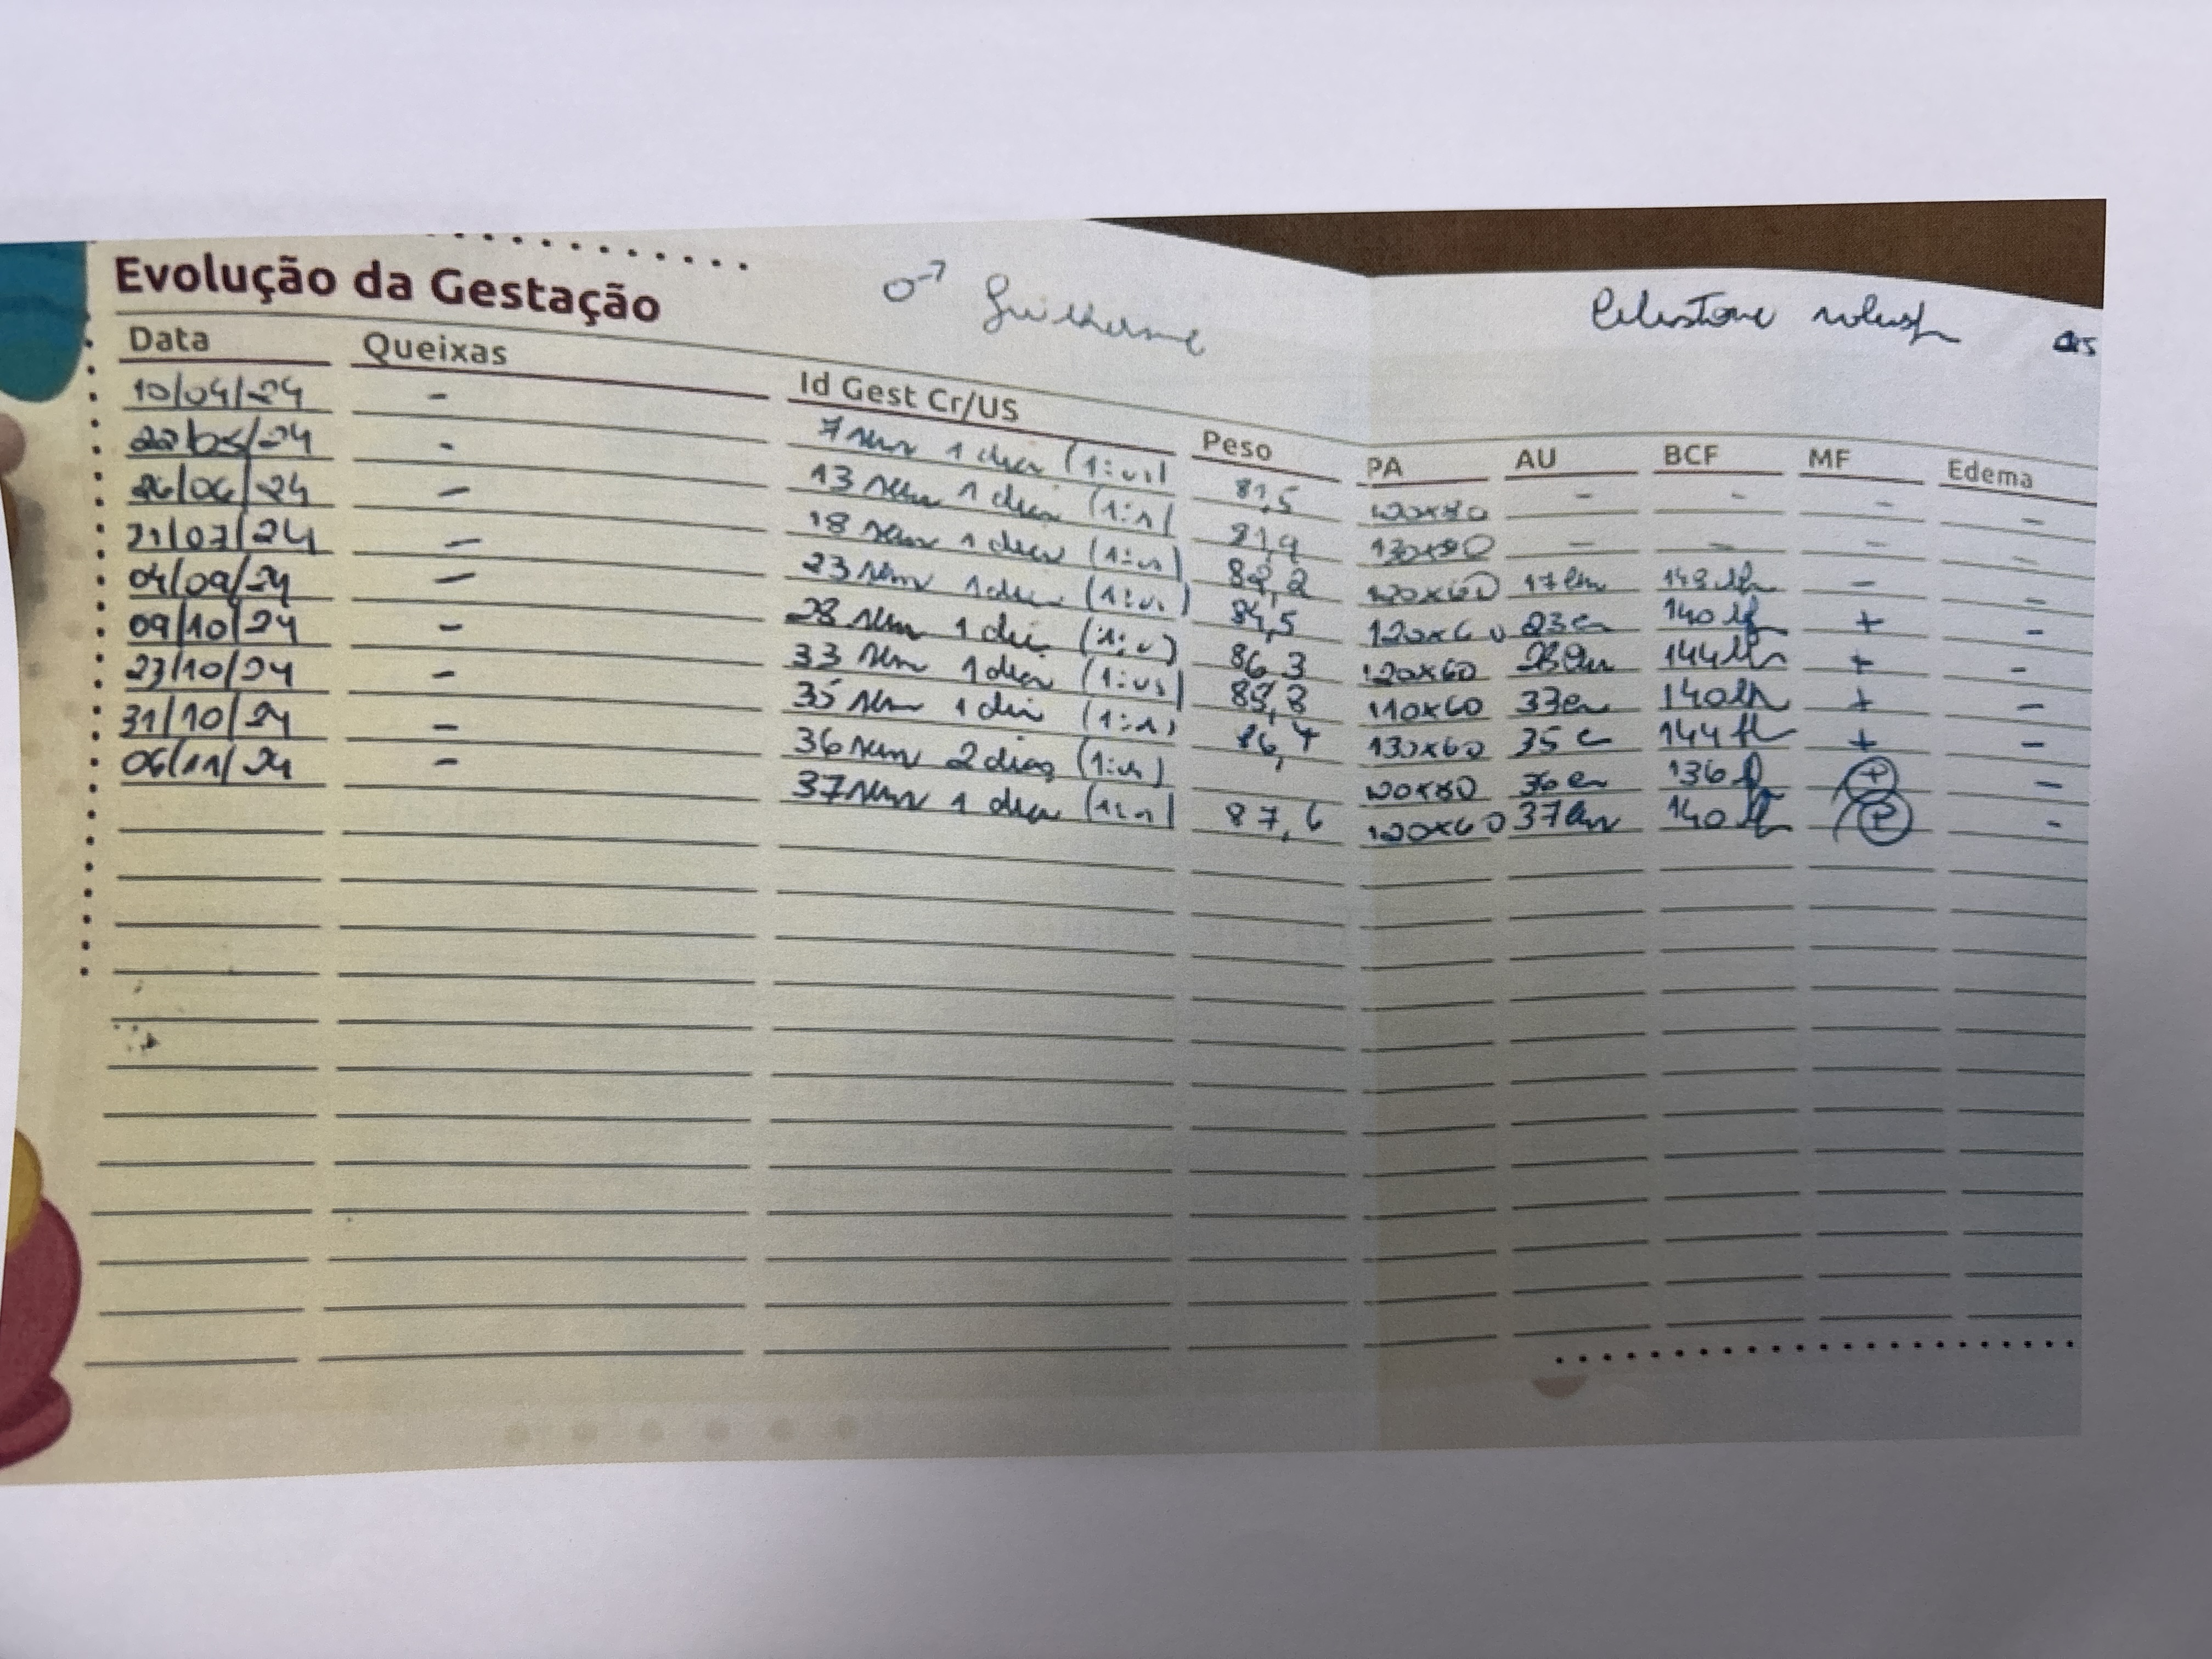 Evolução da Gestação
♂ Guilherme
Celestone
Data Queixas Id Gest Cr/US Peso PA AU BCF MF Edema
10/04/24 - 7 sem 1 dia 81,5 120x80 - - - -
22/05/24 - 13 sem 1 dia 81,9 130x80 - - - -
26/06/24 - 18 sem 1 dia 82,2 120x60 17cm 148 - -
31/07/24 - 23 sem 1 dia 84,5 120x60 23c 140 + -
04/09/24 - 28 sem 1 dia 86,3 120x60 28cm 144 + -
09/10/24 - 33 sem 1 dia 85,8 110x60 33c 140 + -
23/10/24 - 35 sem 1 dia 86,4 130x60 35 c 144 + -
31/10/24 - 36 sem 2 dias 120x80 36c 136 + -
06/11/24 - 37 sem 1 dia 87,6 120x60 37cm 140 + -